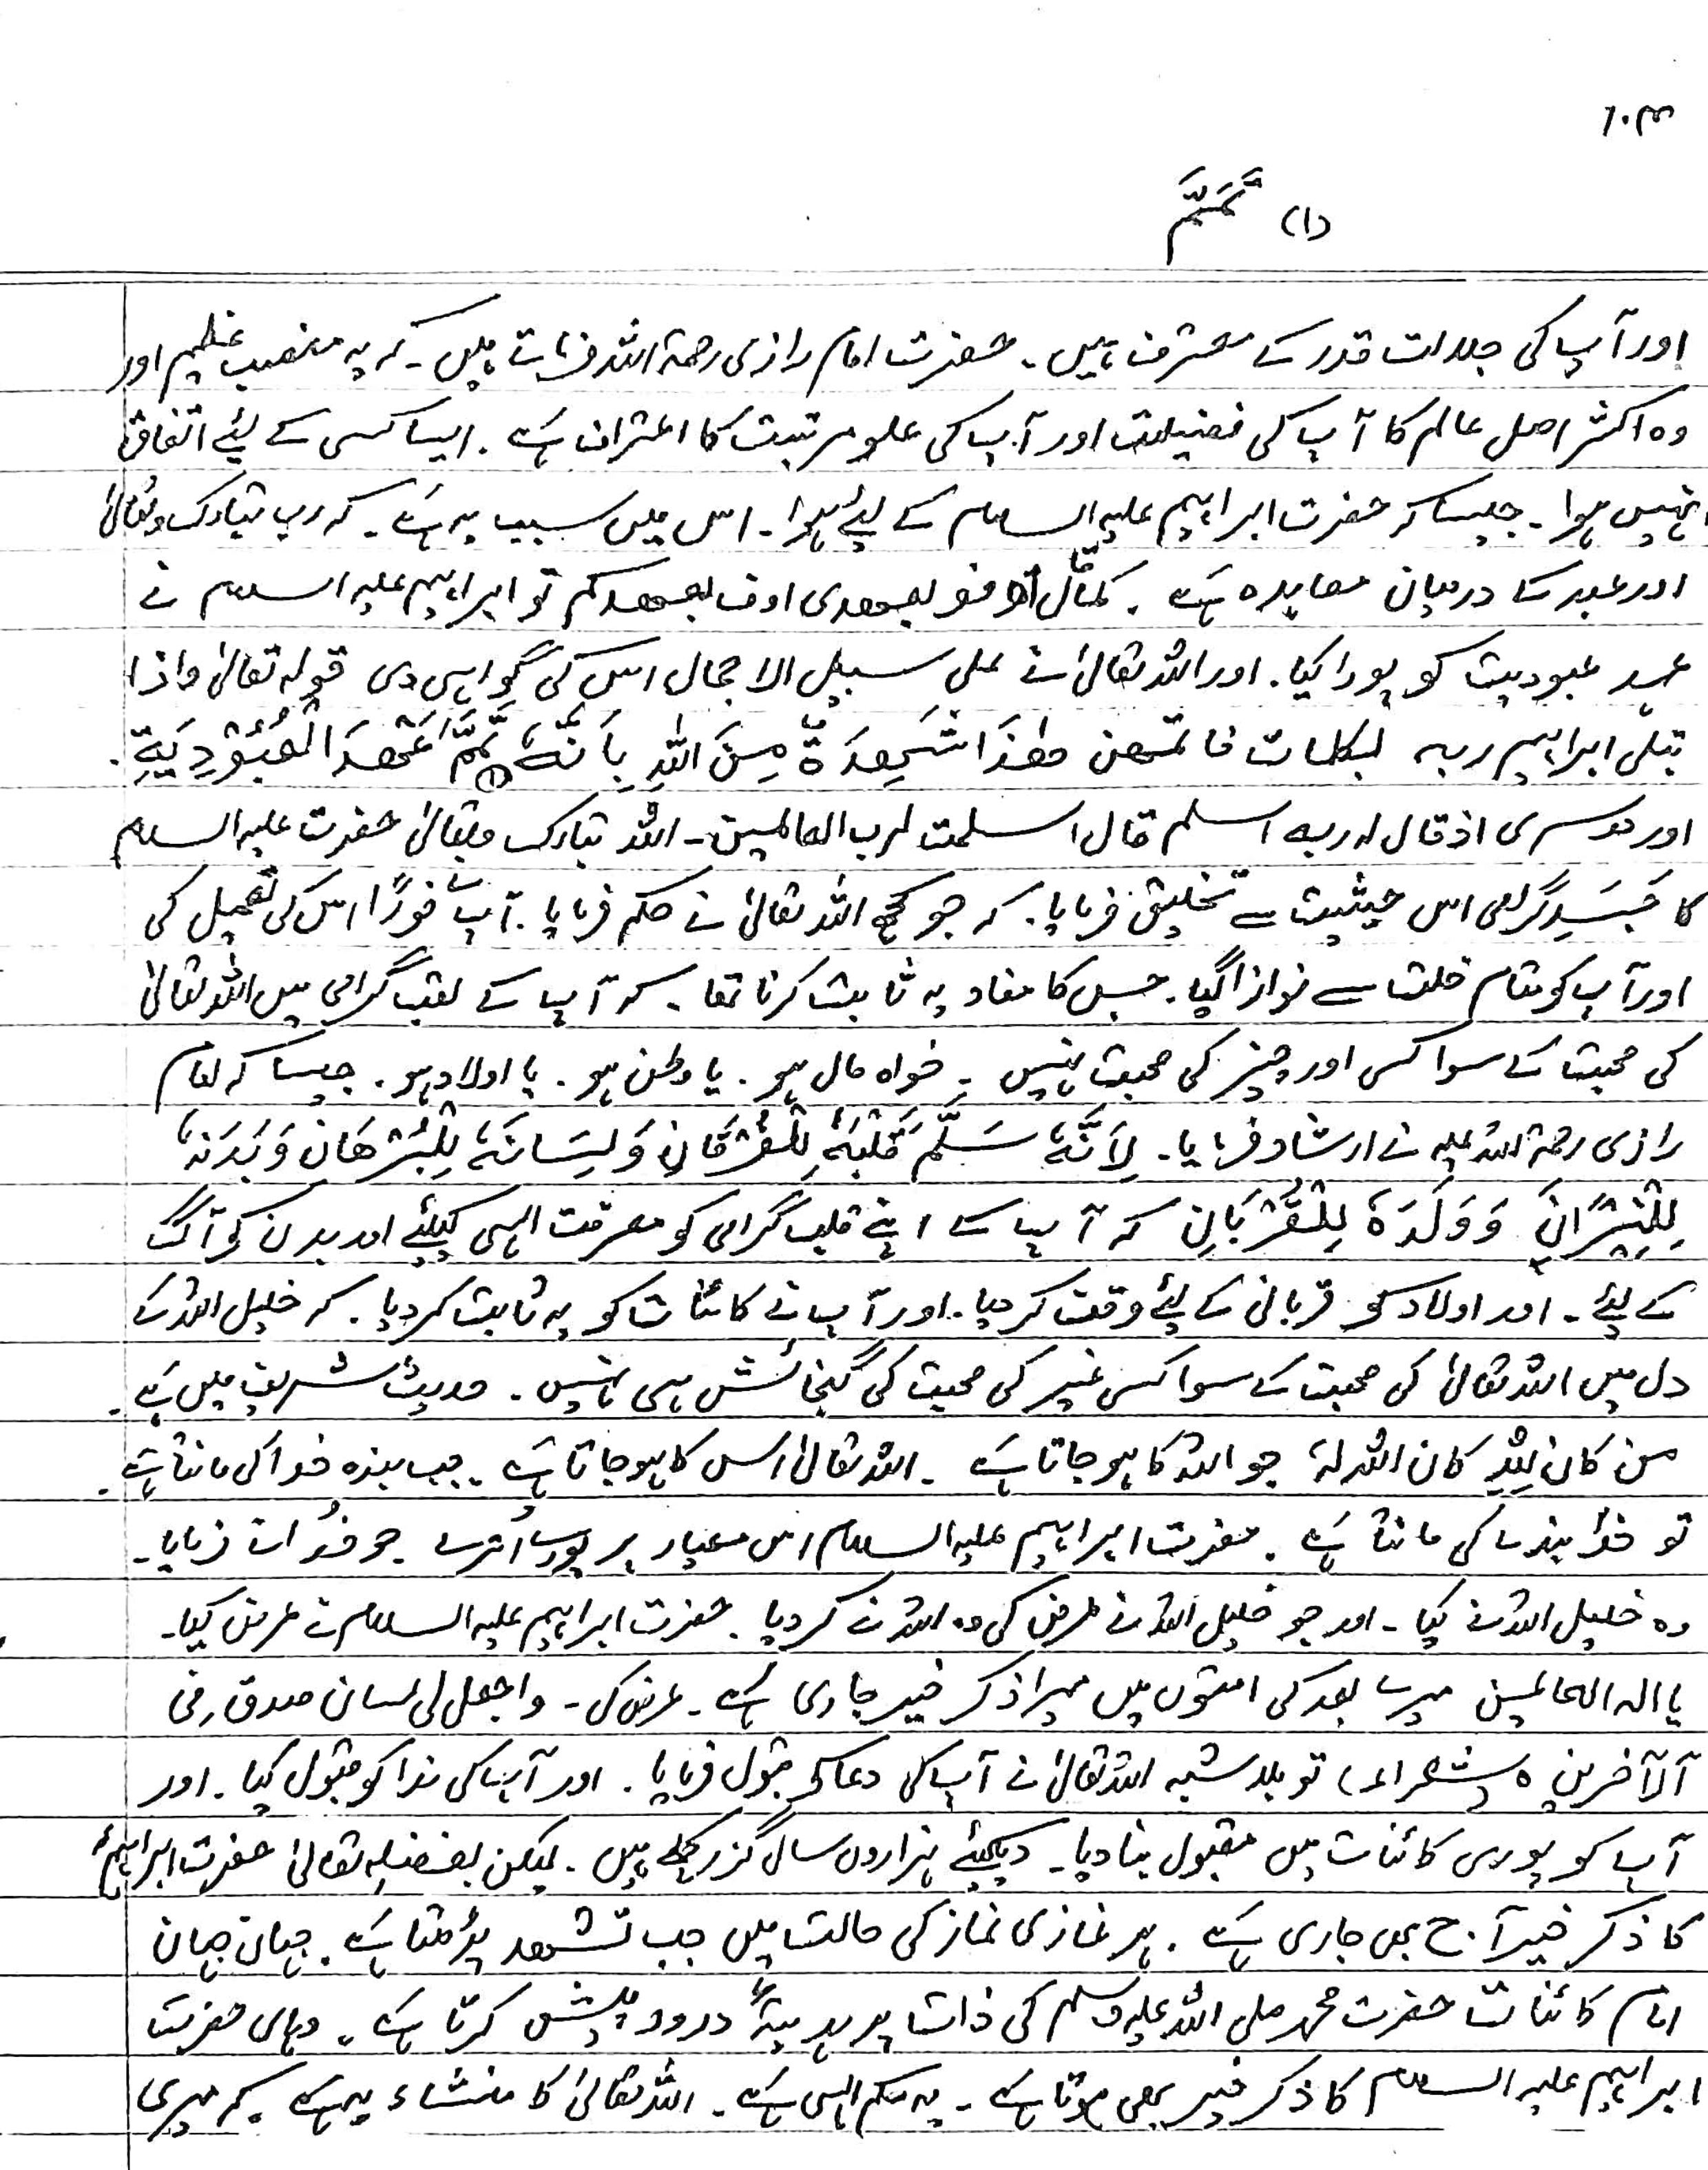 ۱۰۳
(۱) تَمَّمَ
اور آپ کی جلالت قدر کے معترف ہیں ۔ حضرت امام رازی رحمۃ اللہ فرماتے ہیں ۔ کہ یہ منصب عظیم اور
وہ اکثر اھل عالم کا آپ کی فضیلت اور آپ کی علو مرتبت کا اعتراف ہے ۔ ایسا کسی کے لیٔے اتفاق
نہیں ہوا ۔ جیسا کہ حضرت ابراہیم علیہ السلام کے لیٔے ہوا ۔ اس میں سبب یہ ہے ۔ کہ رب تبارک وتعالیٰ
اور عبد کا درمیان معاہدہ ہے ۔ کما قال اوفو بعھدی اوف بعھدکم تو ابراہیم علیہ السلام نے
عہد عبودیت کو پورا کیا ۔ اور اللہ تعالیٰ نے علی سبیل الاجمال اس کی گواہی دی قولہ تعالیٰ واذا
بتلی ابراہیم ربہ بکلمات فاتمھن وھٰذَا شَھِدَۃٌ مِنَ اللہِ بِاَنَّہٗ تَمَّمَ (۱) عَھْدَ الْعُبُوْدِیَۃِ ۔
اور دوسری اذ قال لہ ربہ اسلم قال اسلمت لرب العالمین ۔ اللہ تبارک وتعالیٰ حضرت علیہ السلام
کا جَسَدِ گرامی اس حیثیت سے تخلیق فرمایا ۔ کہ جو کچھ اللہ تعالیٰ نے حکم فرمایا ۔ آپ نے فورًا اس کی تعمیل کی
اور آپ کو مقام خلت سے نوازا گیا ۔ جس کا مفاد یہ ثابت کرنا تھا ۔ کہ آپ کے لقب گرامی میں اللہ تعالیٰ
کی محبت کے سوا کسی اور چیز کی محبت نہیں ۔ خواہ مال ہو ۔ یا وطن ہو ۔ یا اولاد ہو ۔ جیسا کہ امام
رازی رحمۃ اللہ علیہ نے ارشاد فرمایا ۔ لِاَنَّہٗ سَلَّمَ قَلْبَہٗ لِلْعُرْفَانِ وَلِسَانَہٗ لِلْبُرْھَانِ وَبَدَنَہٗ
لِلنِّیْرَانِ وَوَلَدَہٗ لِلْقُرْبَانِ کہ آپ نے اپنے قلب گرامی کو معرفت الہی کیلیٔے اور بدن کو آگ
کے لیٔے ۔ اور اولاد کو قربانی کے لیٔے وقف کر دیا ۔ اور آپ نے کائنات کو یہ ثابت کر دیا ۔ کہ خلیل اللہ کے
دل میں اللہ تعالیٰ کی محبت کے سوا کسی غیر کی محبت کی گنجائش ہی نہیں ۔ حدیث شریف میں ہے ۔
من کان لِلّٰہِ کان اللہ لہٗ جو اللہ کا ہو جاتا ہے ۔ اللہ تعالیٰ اس کا ہو جاتا ہے ۔ جب بندہ خدا کی مانتا ہے ۔
تو خدا بندے کی مانتا ہے ۔ حضرت ابراہیم علیہ السلام اس معیار پر پورے اُترے ۔ جو خدا نے فرمایا ۔
وہ خلیل اللہ نے کیا ۔ اور جو خلیل اللہ نے عرض کی وہ اللہ نے کر دیا ۔ حضرت ابراہیم علیہ السلام نے عرض کیا ۔
یا الہ العالمین میرے بعد کی امتوں میں میرا ذکر خیر جاری ہے ۔ عرض کی ۔ واجعل لی لسان صدق فی
الآخرین ہ شعراء) تو بلا شبہ اللہ تعالیٰ نے آپ کی دعا کو قبول فرمایا ۔ اور آپ کی ندا کو قبول کیا ۔ اور
آپ کو پوری کائنات میں مقبول بنا دیا ۔ دیکھئے ہزاروں سال گزر چکے ہیں ۔ لیکن بفضلہٖ تعالیٰ حضرت ابراہیمؑ
کا ذکر خیر آج بھی جاری ہے ۔ ہر نمازی نماز کی حالت میں جب تشھد پڑھتا ہے ۔ جہاں جہان
امام کائنات حضرت محمد صلی اللہ علیہ وسلم کی ذات پر ہدیۃً درود پیش کرتا ہے ۔ وہاں حضرت
ابراہیم علیہ السلام کا ذکر خیر بھی ہوتا ہے ۔ یہ حکم الہی ہے ۔ اللہ تعالیٰ کا منشاء یہ ہے ۔ کہ میری